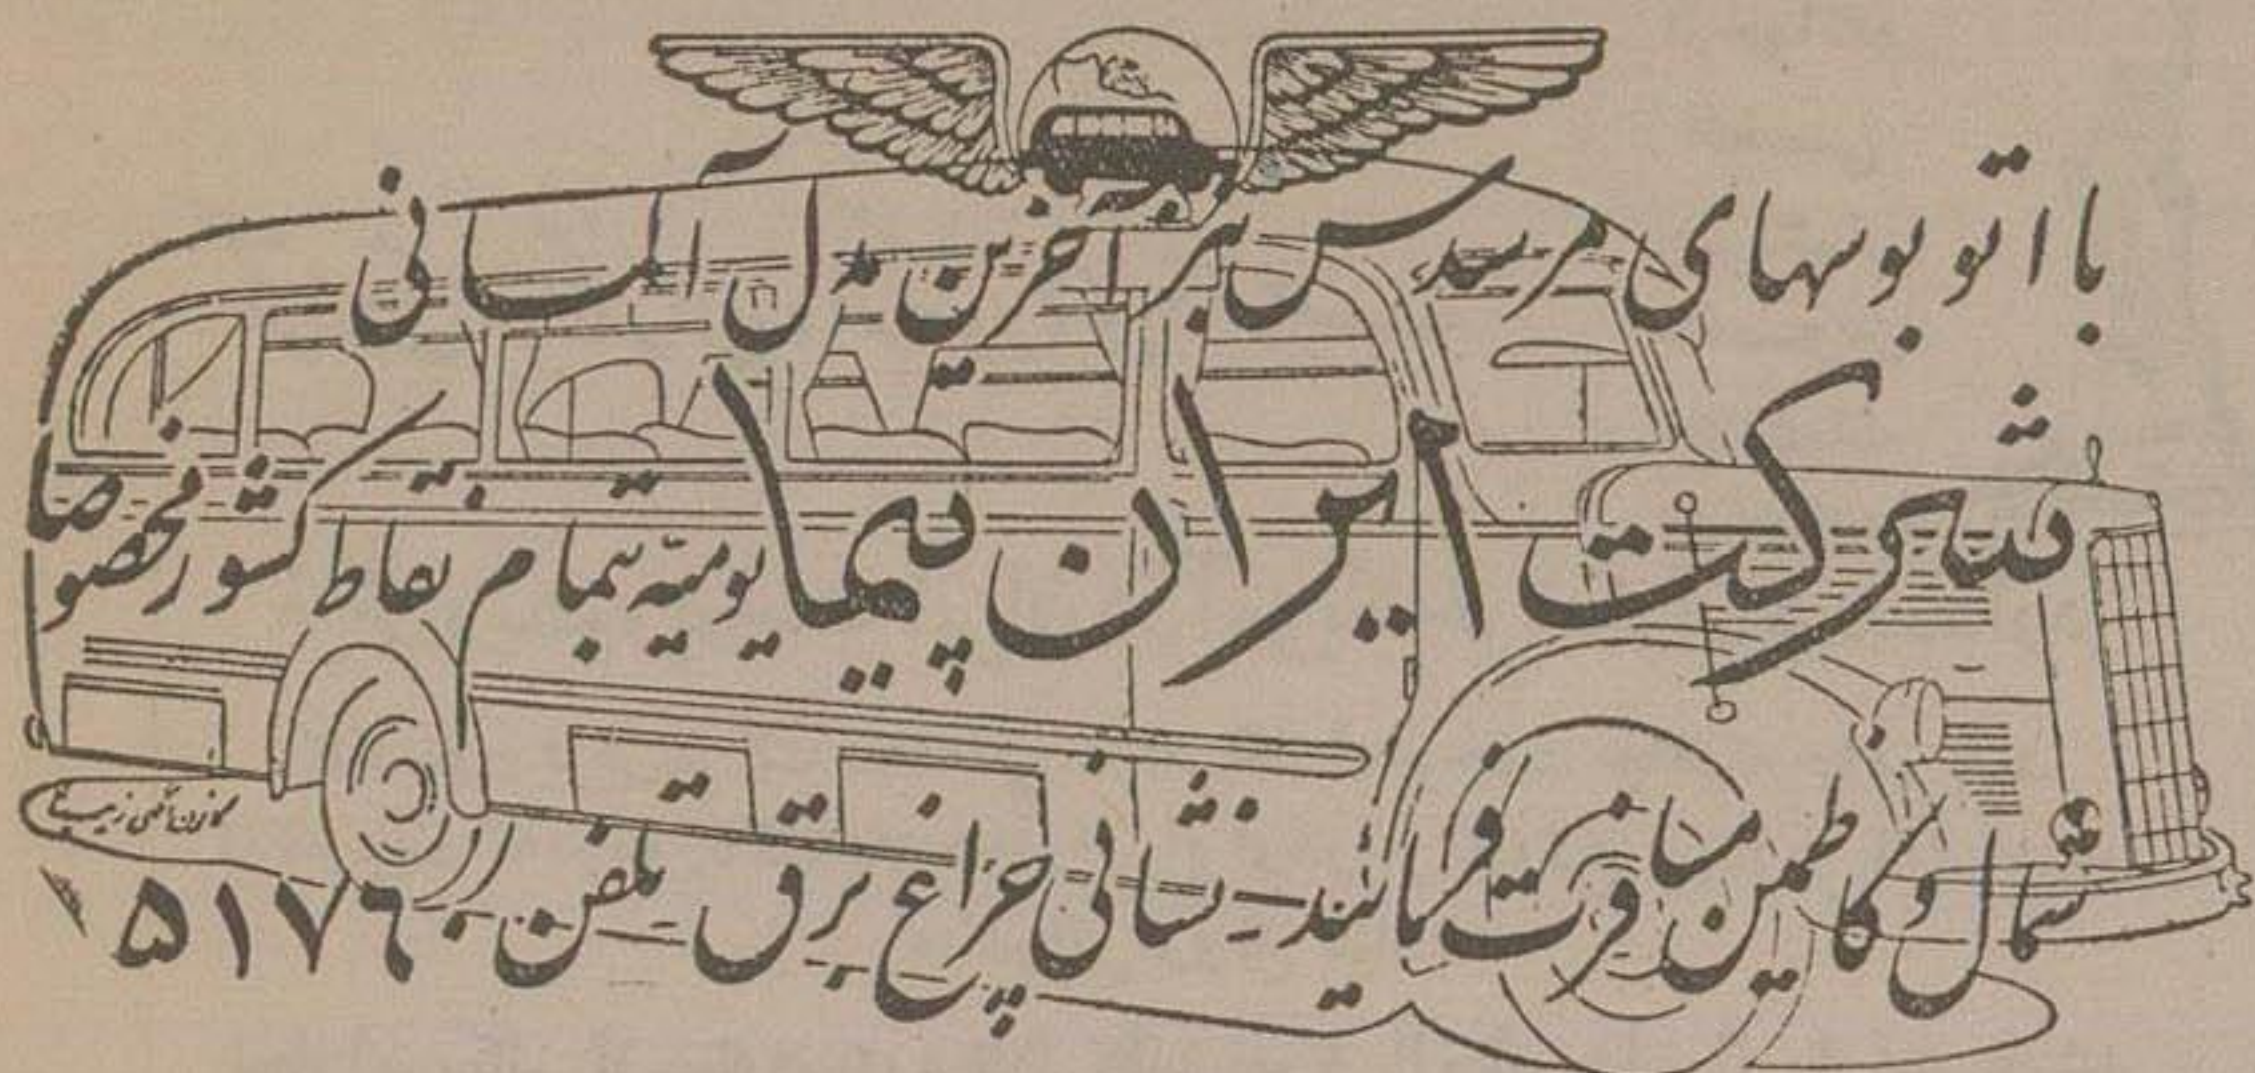 با اتوبوسهای مرسدس بنز آخرین مدل آلمانی
شرکت ایران پیما یومیه بتمام نقاط کشور مخصوصا
شمال و کاظمین مسافرت فرمائید - نشانی چراغ برق تلفن ۵۱۷۶۰
کانون آگهی زیبا